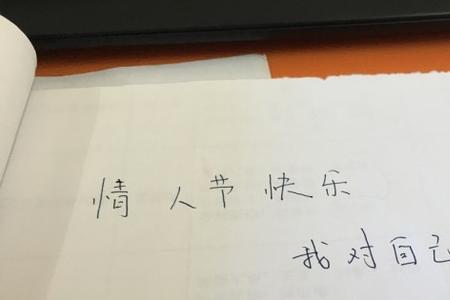 情人节快乐
我对自己